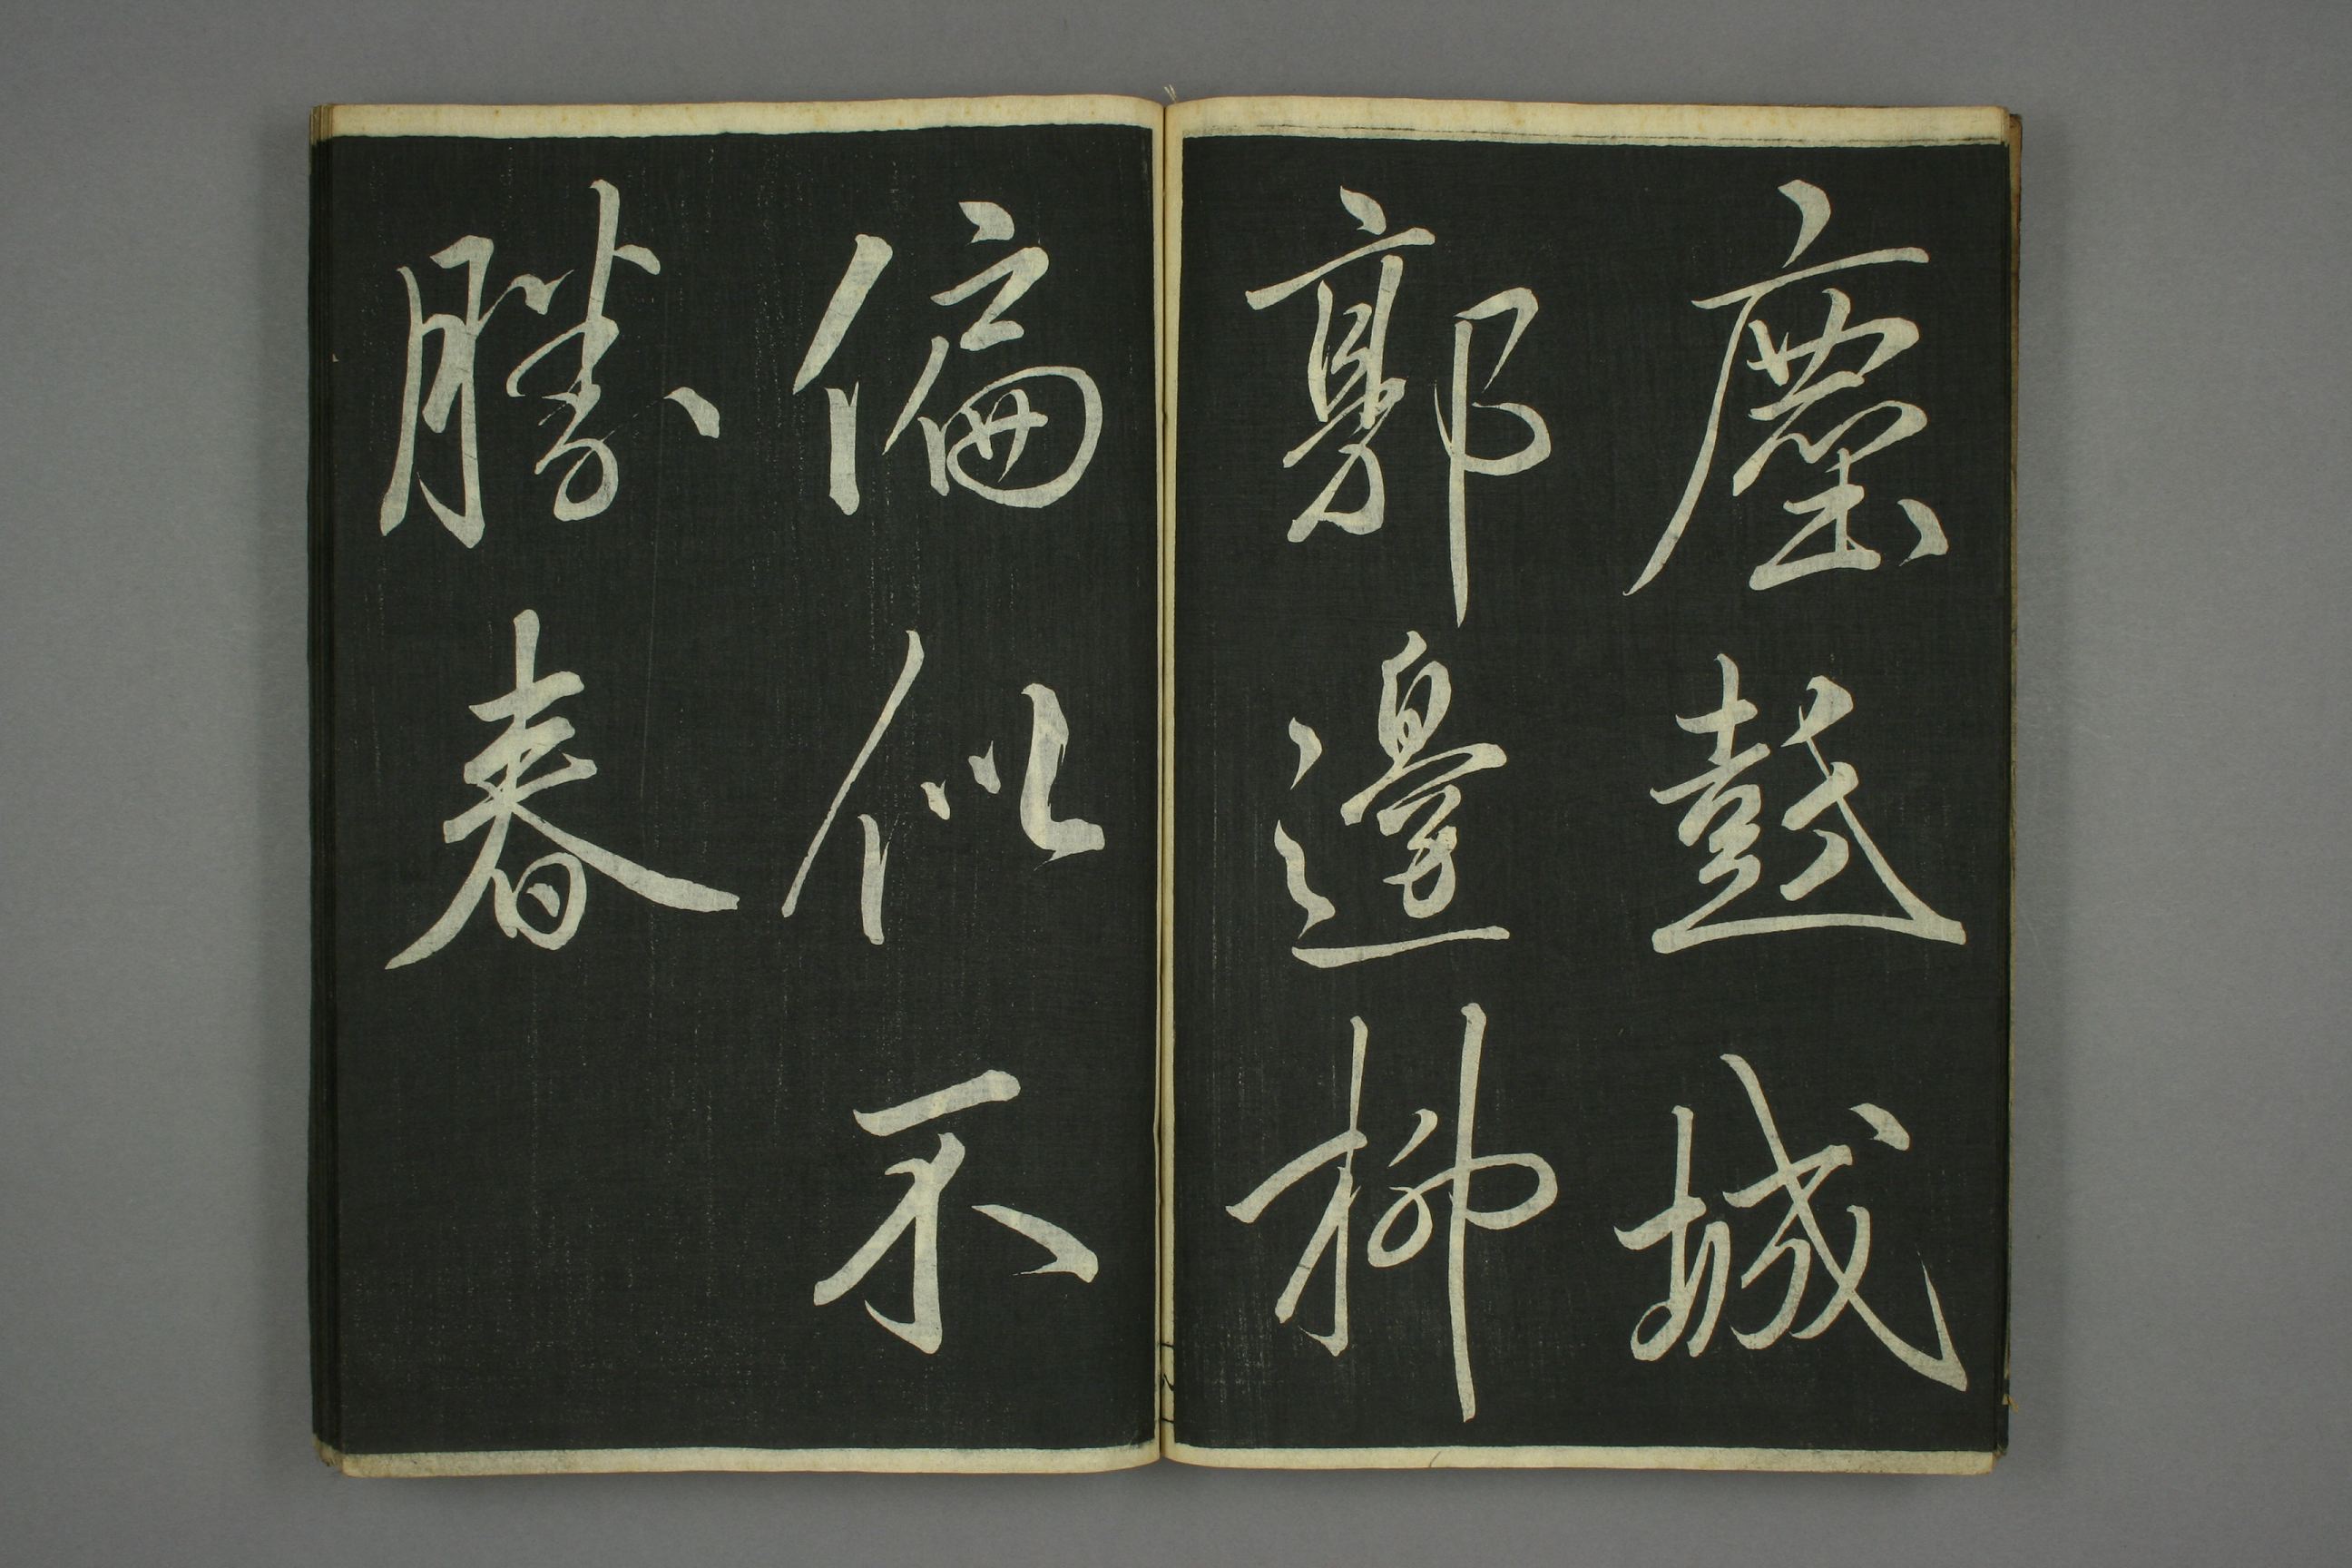 塵鼓城
郭邊柳
偏似不
勝春